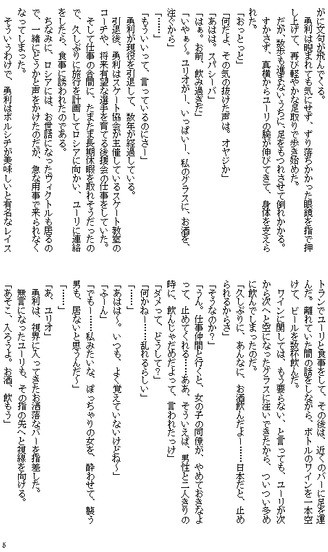 が上文句が飛んでくる。
　勇利は聞きまとめる気にせず、ずり落ちかかった眼鏡を指で押
し上げて、再び軽やかな足取りで歩き始めた。
　だが、数歩も進まないうちに、足をもつれさせて倒れかかる。
　すかさず、真横からユーリの腕が伸びてきて、身体を支えら
れた。
「おっとっと」
「何だよ、その気の抜けた声は。オヤジか」
「あはは。スパシーバ」
「はぁ。お前、飲み過ぎだ」
「いやぁ～。ユリオが、いっぱいー、私のグラスに、お酒を、
注ぐから」
「もういいって、言っているのにさー」
　勇利が現役を引退して、数年が経過している。
　引退後、勇利はスケート協会が主催しているスケート教室の
コーチや、将来有望な選手を育てる後援会の仕事をしていた。
　そして仕事の合間に、たまたま長期休暇を取れそうだったの
で、久しぶりに旅行を計画してロシアに向かい、ユーリに連絡
をしたら、食事に誘われたのである。
　ちなみに、ロシアには、お世話になったヴィクトルも居るの
で、一緒にどうかと声をかけたのだが、急な用事で来られなく
なってしまった。
　そういうわけで、勇利はボルシチが美味しいと有名なレス
トランでユーリと食事をして、その後は、近くのバーに足を運
んだ。離れていた間の話をしながら、ボトルのワインを一本空
け、ビールを数杯飲んだ。
　ワインに関しては、もう要らない、と言っても、ユーリが次
から次へと空になったグラスに注いできたから、ついつい多め
に飲んでしまったのだ。
「久しぶりに、あんなに、お酒飲んだよ……日本だと、止め
られるからさ」
「そうなのか？」
「うん。仕事仲間と行くと、女の子の同僚が、やめておきなよ
って、止めてくれる……ああ、そういえば、男性と二人きりの
時に、飲んじゃだめだよって、言われたっけ」
「ダメって、どうして？」
「何かねー……乱れるらしい」
「あはは～。いつも、よく覚えていないけどね～」
「ふーん」
「でも……私みたいな、ぽっちゃりの女を、酔わせて、襲う
男も、居ないと思うんだ～」
「あ、ユリオ」
　勇利は、視界に入ってきたお洒落なバーを指差した。
　無言になったユーリも、その指の先へと視線を向ける。
「あそこ、入ろうよ。お酒、飲もう」
5